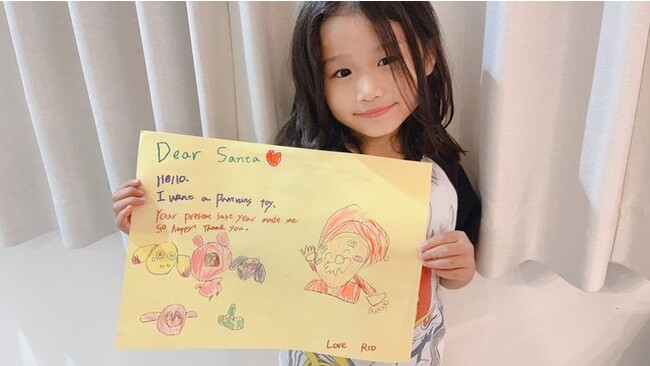 Dear Santa
Hello.
I want a
toy.
Your present last year made me
so happy! Thank you.
Love Rio